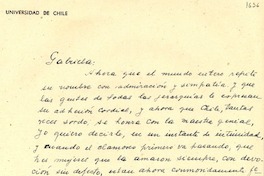 UNIVERSIDAD DE CHILE
Gabriela:
Ahora que el mundo entero repite
su nombre con admiración y simpatía y que
las gentes de todas las jerarquías le expresan
su adhesión cordial, y ahora que Chile, tantas
veces sordo, se honra con la maestra genial,
yo quiero decirle, en un instante de intimidad,
y cuando el clamoreo primero va pasando, que
las mujeres que la amaron siempre, con devo-
ción sin defecto, están ahora conmovidamente